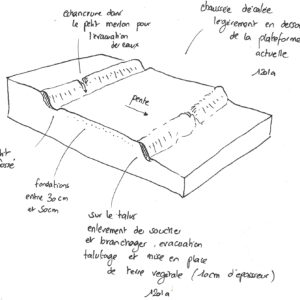 échancrure dans
le petit merlon pour
l'évacuation
des eaux
chaussée décalée
légèrement en dessous
de la plateforme
actuelle
pente
fondations
entre 30 cm
et 50cm
sur le talus
enlèvement des souches
et branchages, évacuation
talutage et mise en place
de terre végétale (10cm d'épaisseur)